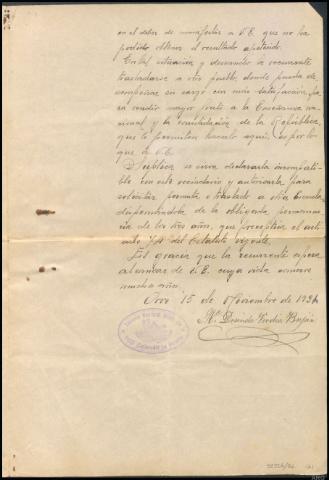 en el deber de manifestar a V.E. que no ha
podido obtener el resultado apetecido.
En tal situación y deseando la recurrente
trasladarse a otro pueblo, donde pueda de-
sempeñar su cargo con más satisfacción, pa-
ra rendir mayor fruto a la Enseñanza na-
cional y la consolidación de la República,
que le permitan hacerlo aquí, es por lo
que a V.E.
Suplica se sirva declararla incompati-
ble con este vecindario y autorizarla para
solicitar permuta o traslado a otra Escuela
dispensándola de la obligada permanen-
cia de los tres años, que preceptúa el artí-
culo 74 del Estatuto vigente.
Es gracia que la recurrente espera
alcanzar de V.E. cuya vida conserve
muchos años.
15 de Noviembre de 1934
Mª